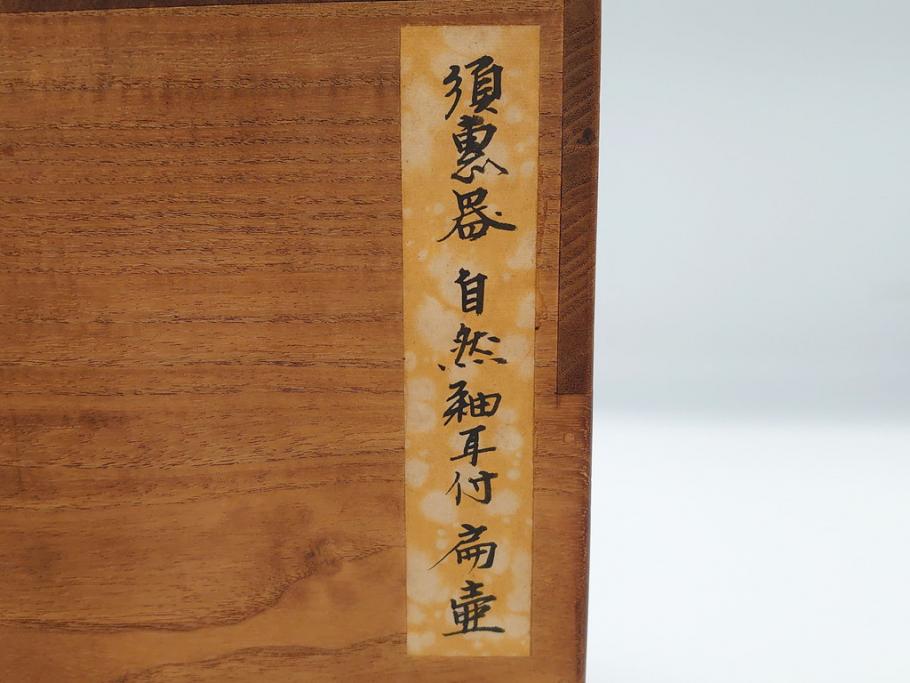 須恵器 自然釉耳付 扁壺